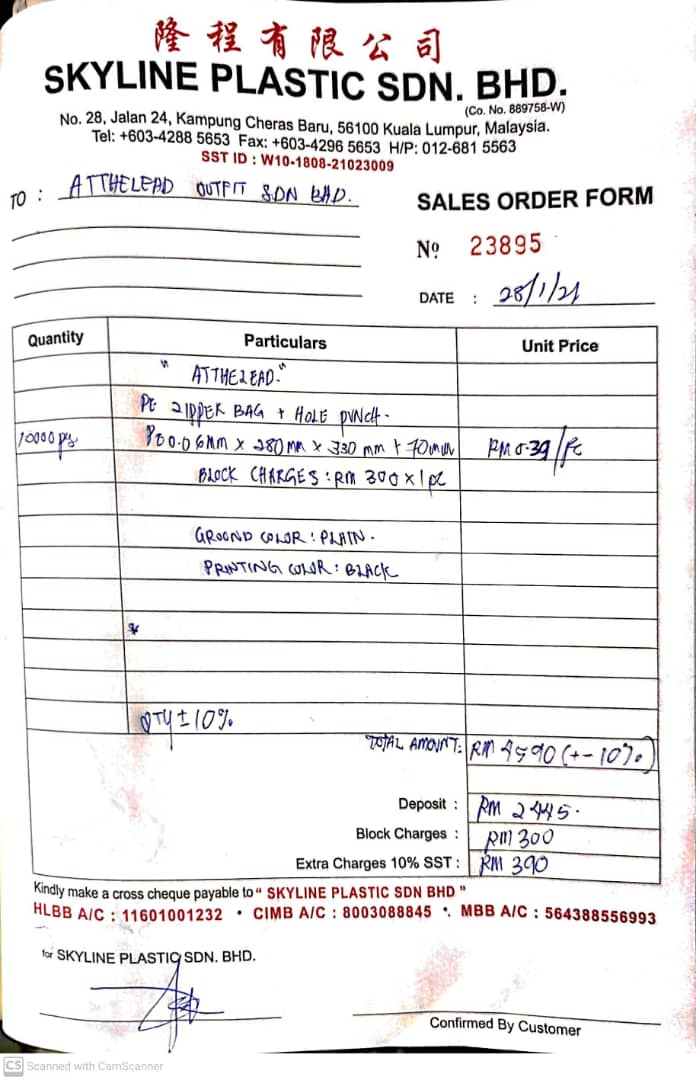 隆程有限公司
SKYLINE PLASTIC SDN. BHD.
(Co. No. 889758-W)
No. 28, Jalan 24, Kampung Cheras Baru, 56100 Kuala Lumpur, Malaysia.
Tel: +603-4288 5653 Fax: +603-4296 5653 H/P: 012-681 5563
SST ID : W10-1808-21023009
TO : ATTHELEAD OUTFIT SDN BHD.
SALES ORDER FORM
Nº 23895
DATE : 28/1/21
Quantity Particulars Unit Price
" ATTHELEAD."
PE ZIPPER BAG + HOLE PUNCH.
10000 pcs 0.06MM X 280MM X 330 mm + 70mm RM 0.39/PC
BLOCK CHARGES : RM 300 X 1 pc
GROUND COLOR : PLAIN.
PRINTING COLOR : BLACK
QTY ± 10%
TOTAL AMOUNT: RM 4590 (+- 10%)
Deposit : RM 2445.
Block Charges : RM 300
Extra Charges 10% SST : RM 390
Kindly make a cross cheque payable to " SKYLINE PLASTIC SDN BHD "
HLBB A/C : 11601001232 • CIMB A/C : 8003088845 • MBB A/C : 564388556993
for SKYLINE PLASTIC SDN. BHD.
Confirmed By Customer
CS Scanned with CamScanner